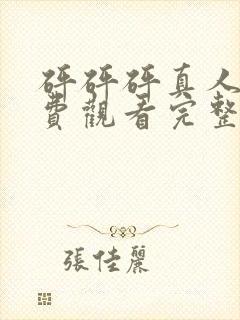 砰砰砰真人
費觀看完整
張佳麗